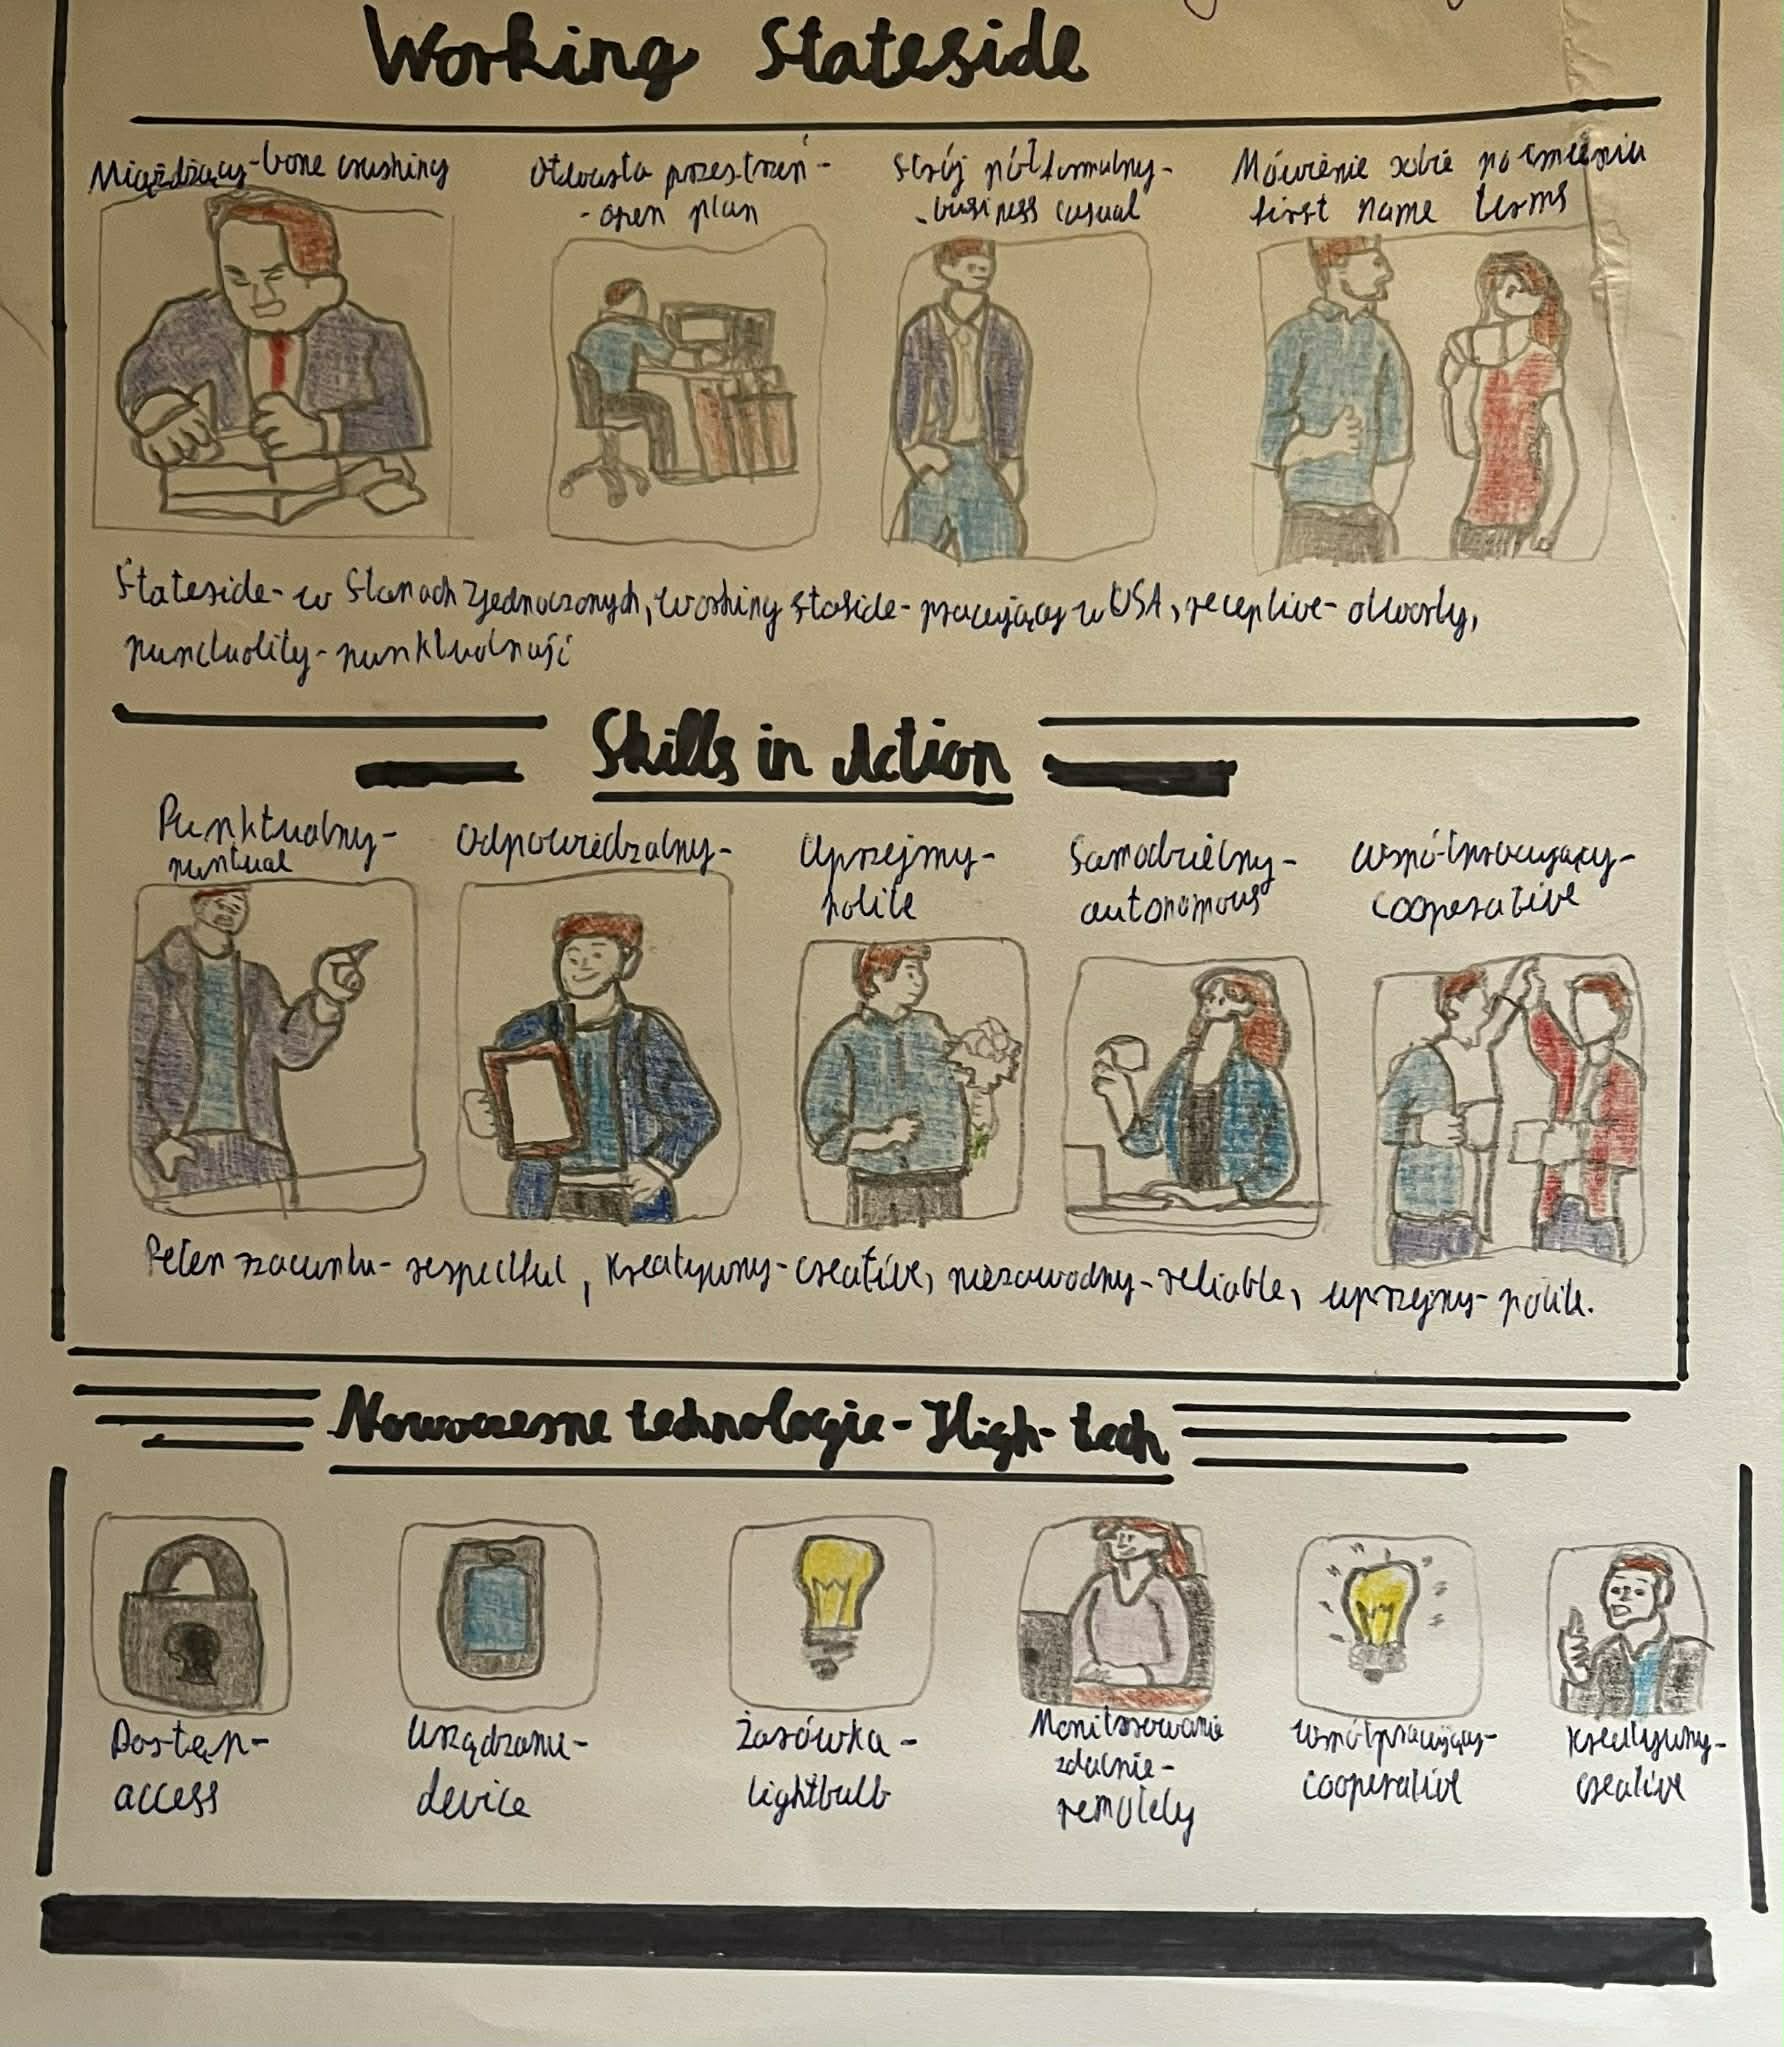 Working Stateside
Miażdżący - bone crushing
Otwarta przestrzeń -
- open plan
Strój półformalny -
- business casual
Mówienie sobie po imieniu
first name terms
Stateside - w Stanach Zjednoczonych, Working staside - pracujący w USA, receptive - otwarty,
punctuality - punktualność
Skills in Action
Punktualny -
puntual
Odpowiedzalny -
Uprzejmy -
polite
Samodzielny -
autonomous
Współpracujący -
cooperative
Pełen szacunku - respectful, kreatywny - creative, niezawodny - reliable, uprzejmy - polite.
Nowoczesne technologie - High-tech
Dostęp -
access
Urządzenie -
device
Żarówka -
lightbulb
Monitorowanie
zdalnie -
remotely
Współpracujący -
cooperative
Kreatywny -
creative